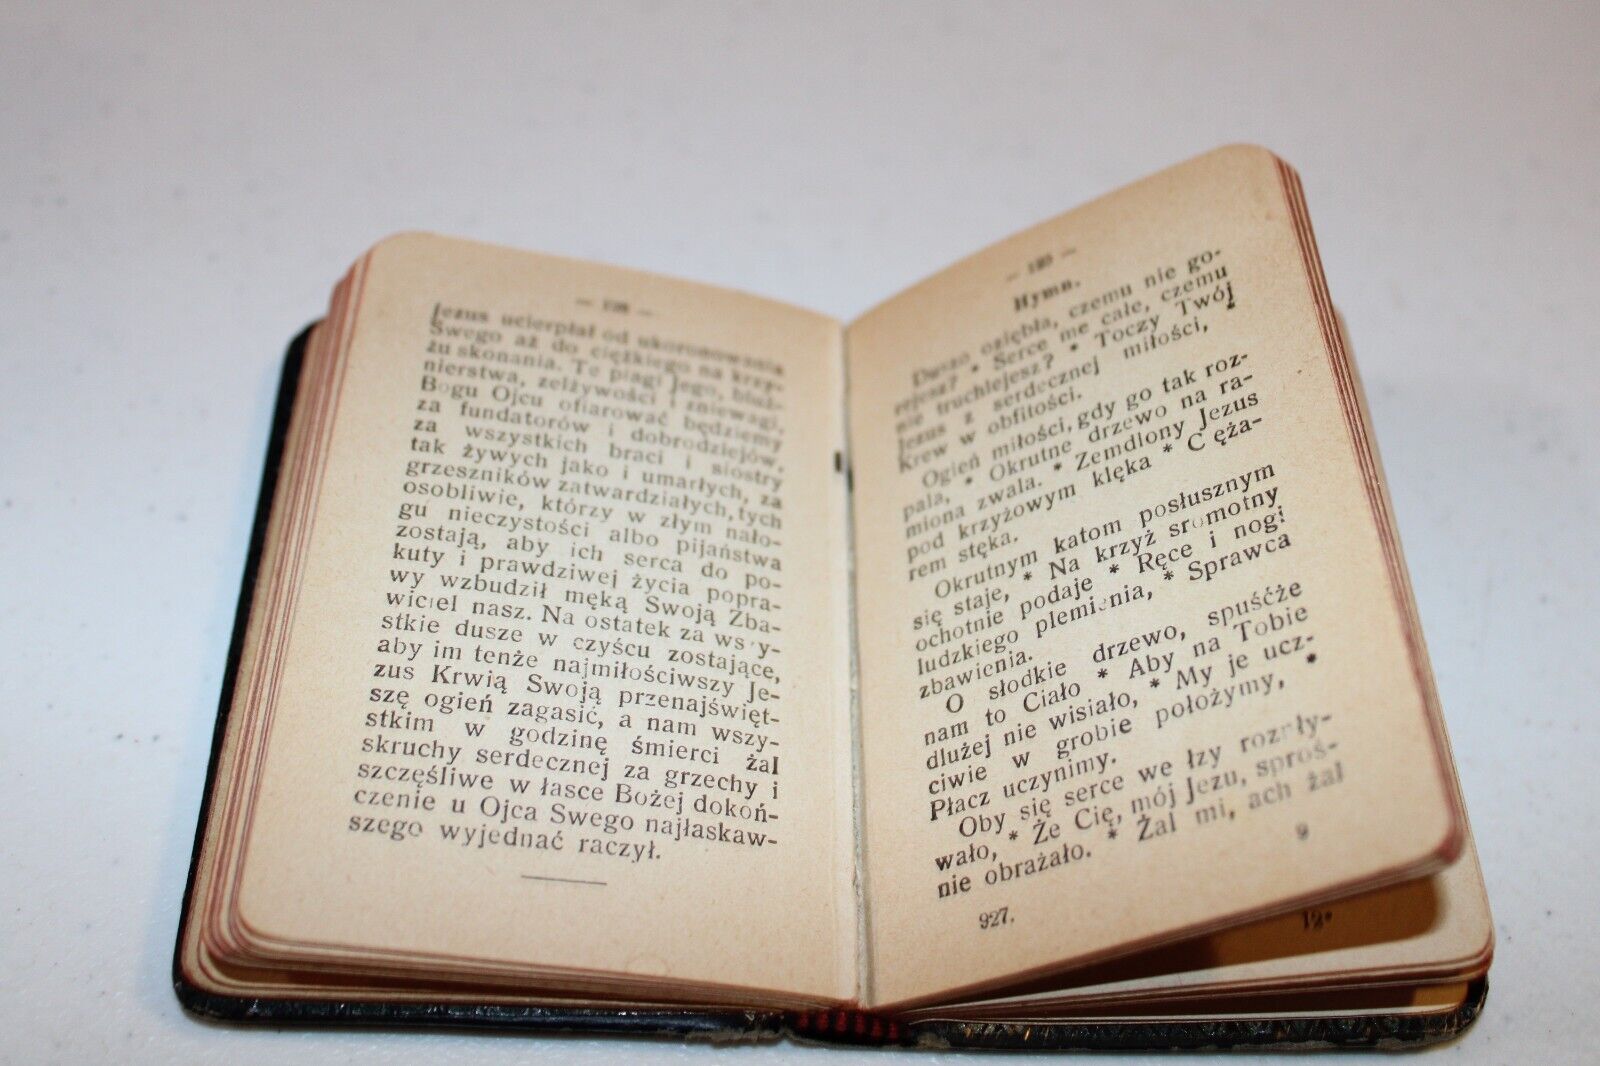 — 128 —
Jezus ucierpiał od ukoronowania
Swego aż do ciężkiego na krzy-
żu skonania. Te plagi Jego, bluź-
nierstwa, zelżywości i zniewagi,
Bogu Ojcu ofiarować będziemy
za fundatorów i dobrodziejów,
za wszystkich braci i siostry
tak żywych jako i umarłych, za
grzeszników zatwardziałych, tych
osobliwie, którzy w złym nało-
gu nieczystości albo pijaństwa
zostają, aby ich serca do po-
kuty i prawdziwej życia popra-
wy wzbudził męką Swoją Zba-
wiciel nasz. Na ostatek za wszy-
stkie dusze w czyścu zostające,
aby im tenże najmiłościwszy Je-
zus Krwią Swoją przenajświęt-
szę ogień zagasić, a nam wszy-
stkim w godzinę śmierci żal
skruchy serdecznej za grzechy i
szczęśliwe w łasce Bożej dokoń-
czenie u Ojca Swego najłaskaw-
szego wyjednać raczył.
Hymn.
Duszo oziębła, czemu nie go-
rejesz? * Serce me całe, czemu
nie truchlejesz? * Toczy Twój
Jezus z serdecznej miłości, *
Krew w obfitości.
Ogień miłości, gdy go tak roz-
pala, * Okrutne drzewo na ra-
miona zwala. * Zemdlony Jezus
pod krzyżowym klęka * C ęża-
rem stęka.
Okrutnym katom posłusznym
się staje, * Na krzyż sromotny
ochotnie podaje * Ręce i nogi
ludzkiego plemienia, * Sprawca
zbawienia.
O słodkie drzewo, spuśćże
nam to Ciało * Aby na Tobie
dłużej nie wisiało, * My je ucz-
ciwie w grobie położymy, *
Płacz uczynimy.
Oby się serce we łzy rozpły-
wało, * Że Cię, mój Jezu, sproś-
nie obrażało. * Żal mi, ach żal
927.
9
12*